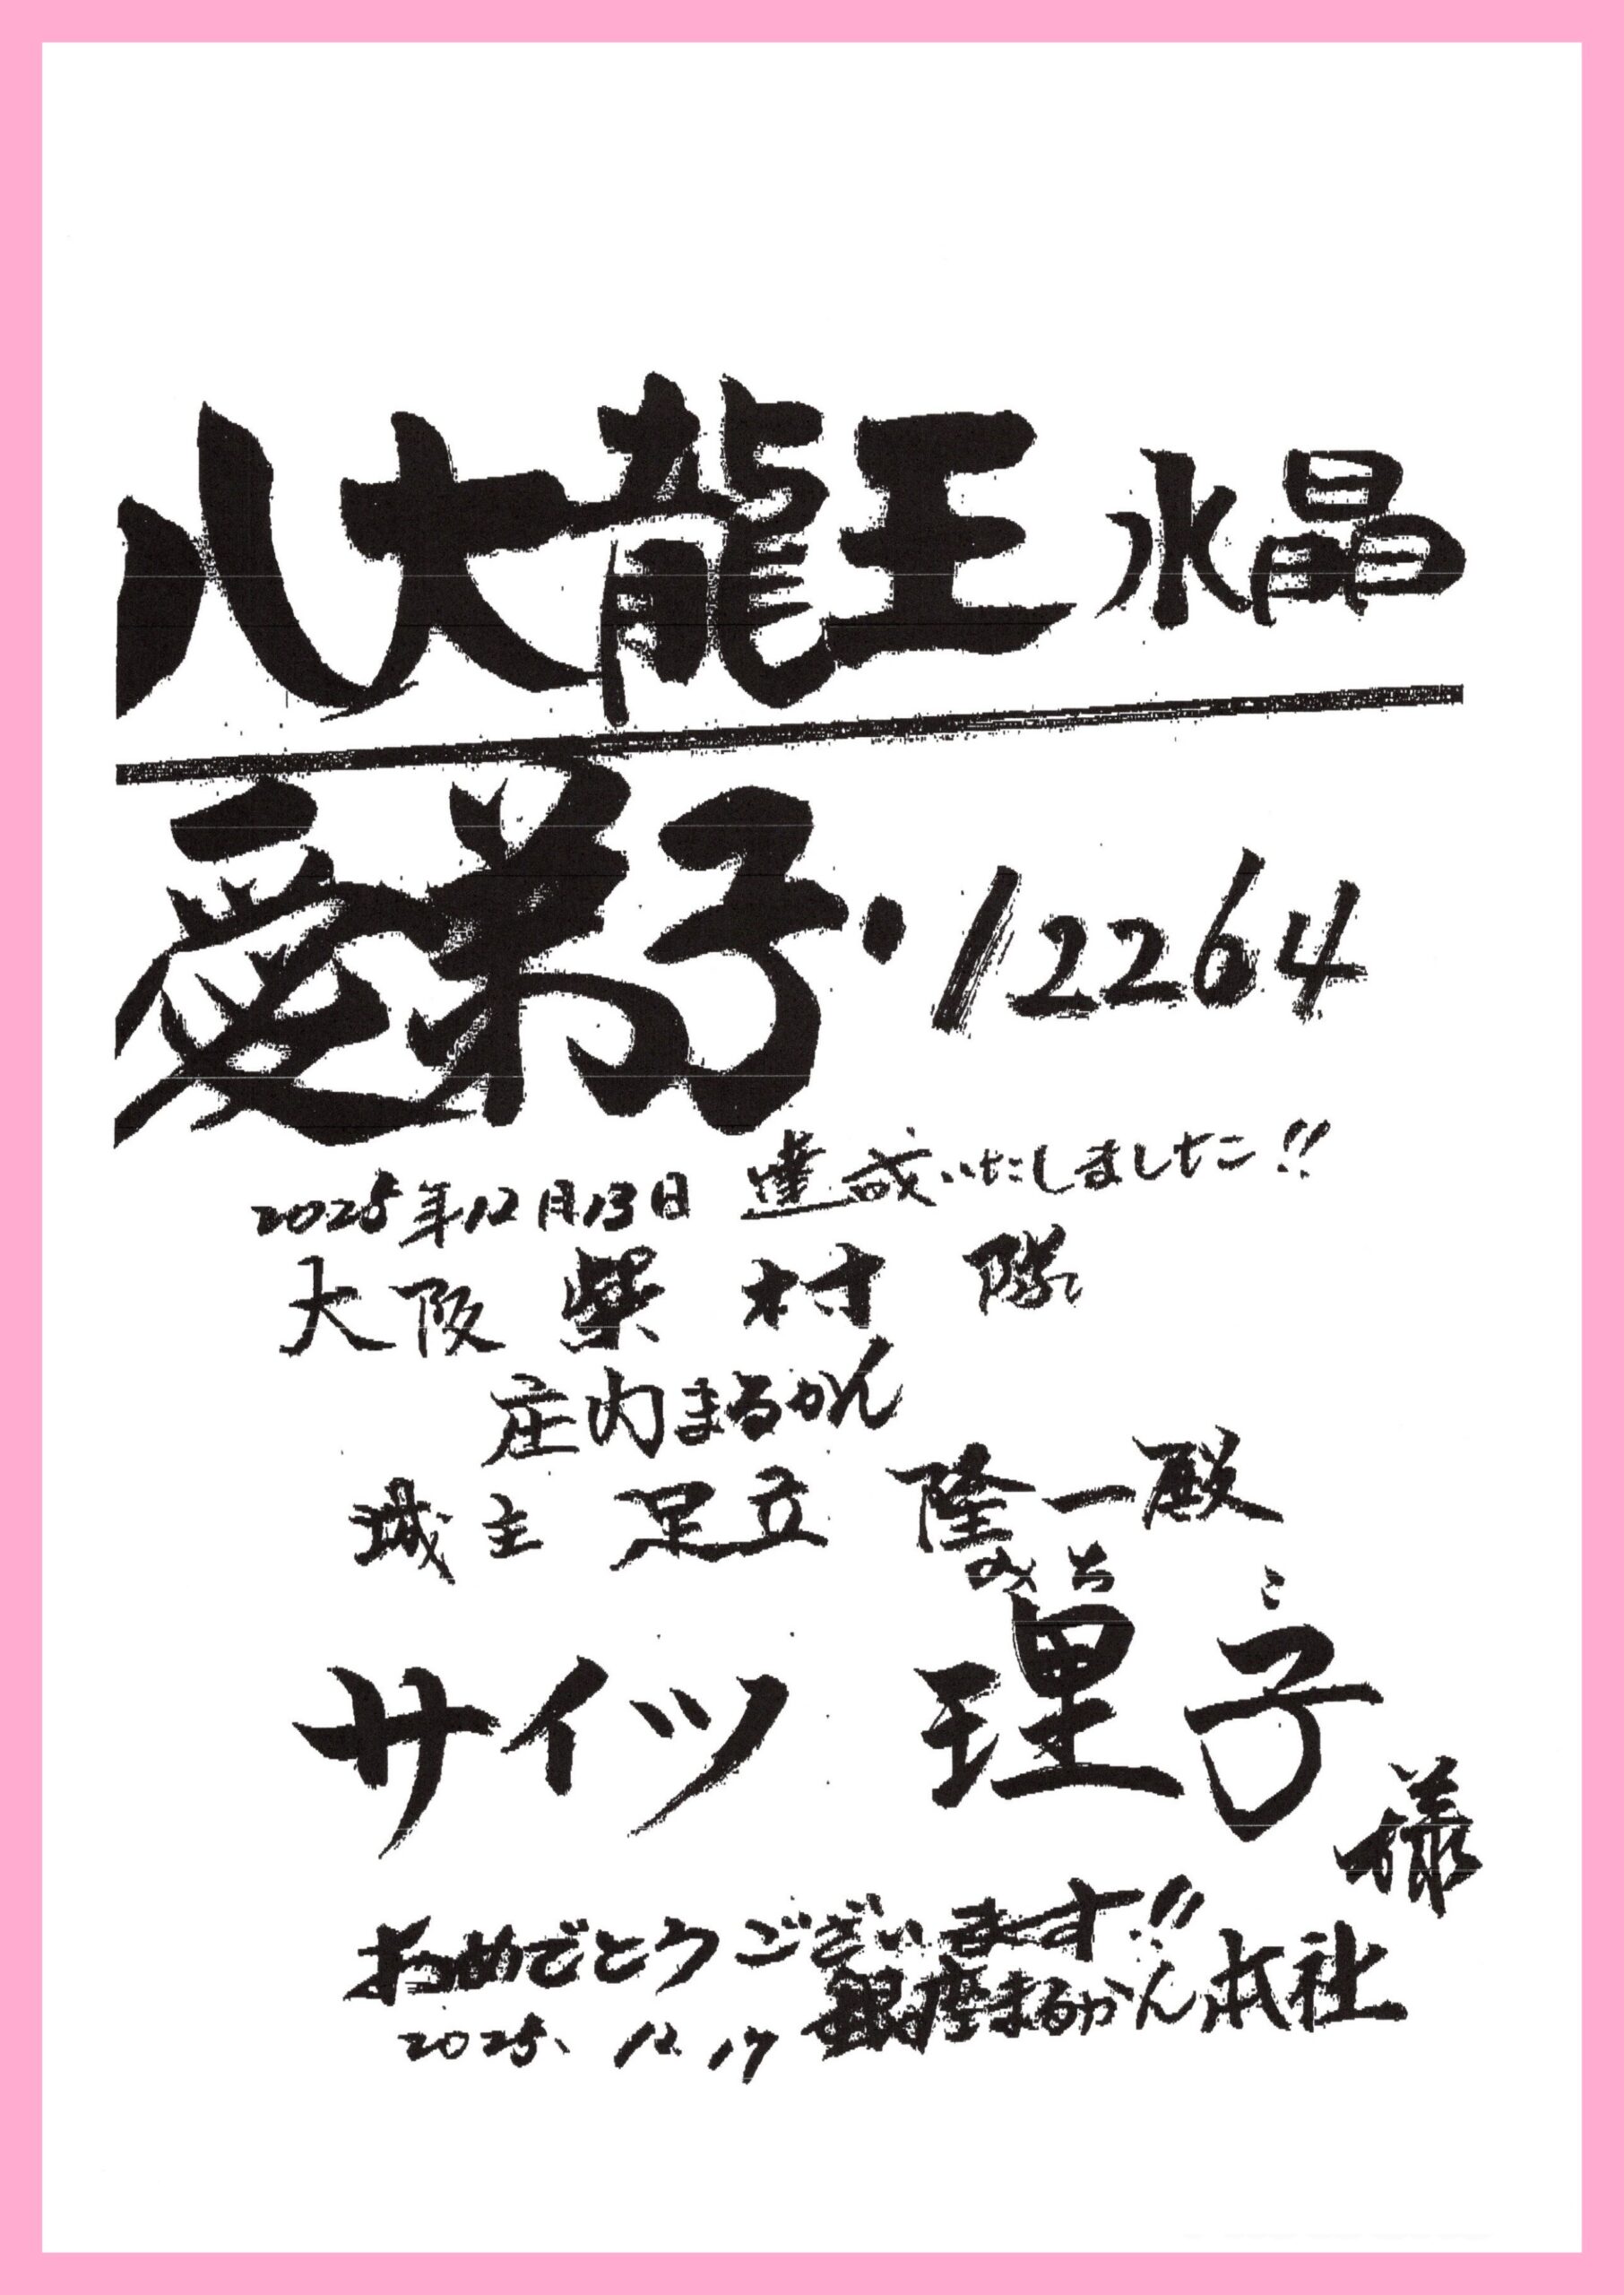 八大龍王 水晶
愛弟子・12264
2025年12月13日 達成いたしました!!
大阪 柴村 隊
庄内まるかん
城主 足立 隆一殿
みちこ
サイツ 理子様
おめでとうございます!!
2025、12、17 銀座まるかん本社